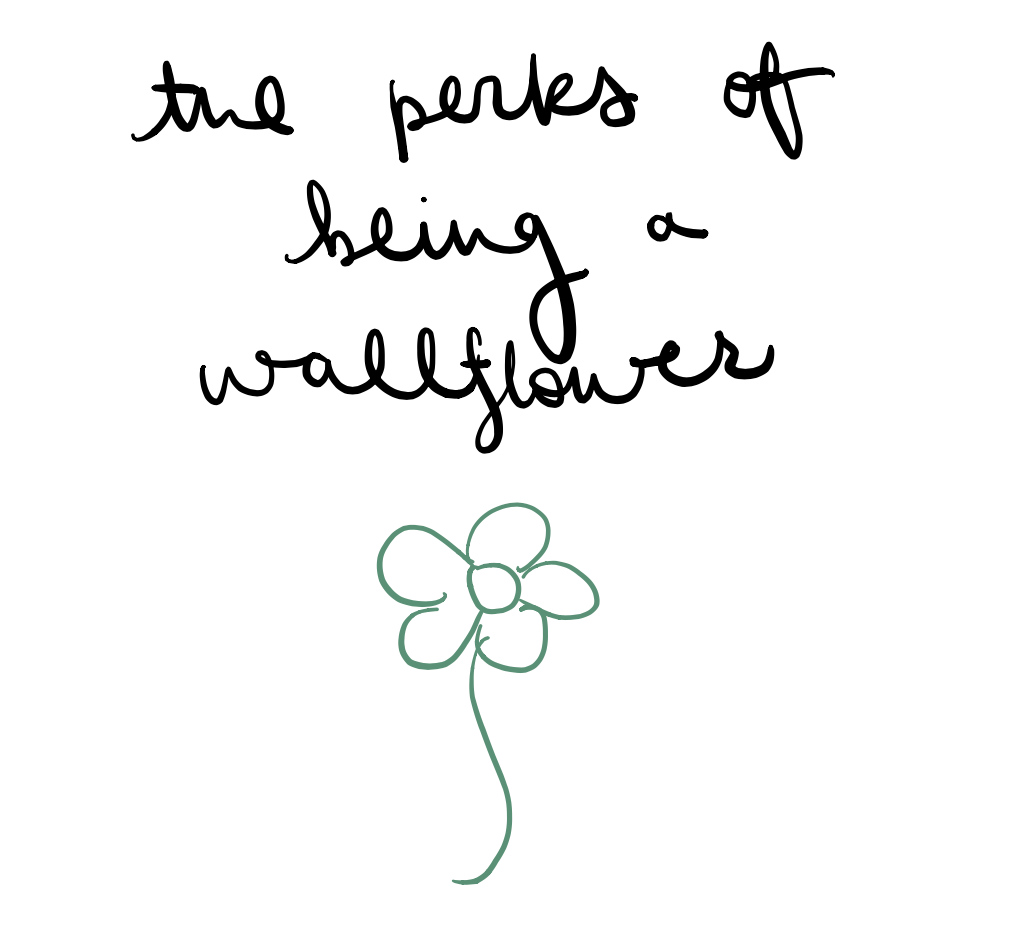 the perks of
being a
wallflower